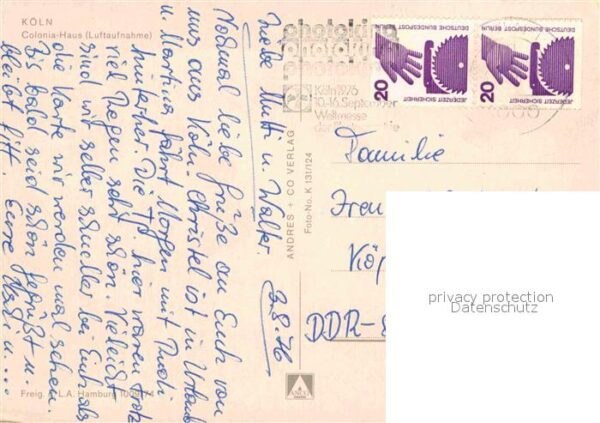 KÖLN
Colonia-Haus (Luftaufnahme)
3.8.76
Liebe Mutti u. Walter.
Nochmal liebe Grüße an Euch von
uns aus Köln. Christel ist in Urlaub
u. Martina fährt Morgen mit Rudi
hinterher. Die Tg. hier waren trotz
viel Regen sehr schön. Vieleicht
sind wir selber schneller bei Euch als
die Karte wir werden mal sehen.
Bis bald seid schön gegrüßt u.
bleibt fitt. Eure
Freig. d. L.A. Hamburg
ANDRES + CO VERLAG
Foto-No. K 131/124
photokina
photokina
Köln 1976
10.-16. September
Weltmesse
der Photographie
DEUTSCHE BUNDESPOST BERLIN
JEDERZEIT SICHERHEIT
20
DEUTSCHE BUNDESPOST BERLIN
JEDERZEIT SICHERHEIT
20
Familie
DDR-
privacy protection
Datenschutz